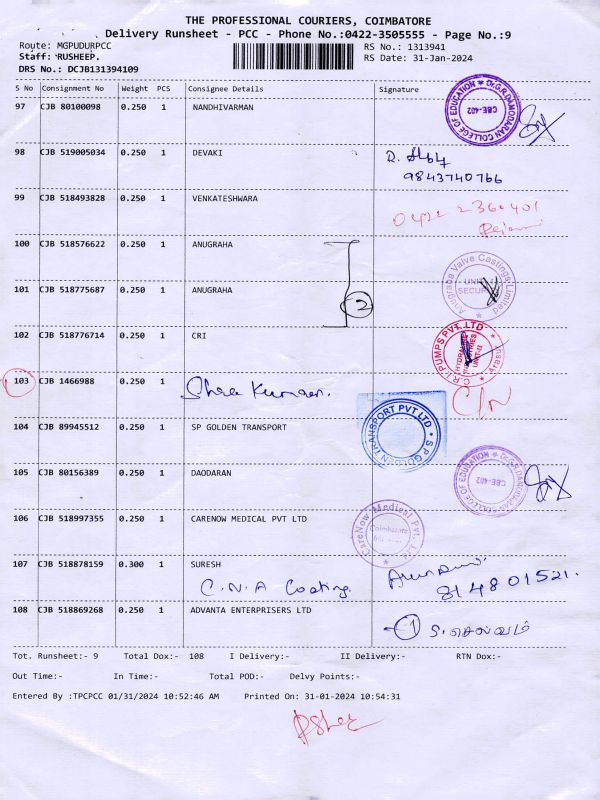 THE PROFESSIONAL COURIERS, COIMBATORE
Delivery Runsheet - PCC - Phone No.:0422-3505555 - Page No.:9
Route: MGPUDURPCC RS No.: 1313941
Staff: RUSHEEP. RS Date: 31-Jan-2024
DRS No.: DCJB131394109
S No Consignment No Weight PCS Consignee Details Signature
97 CJB 80100098 0.250 1 NANDHIVARMAN
Dr.G.R.DAMODARAN COLLEGE OF EDUCATION
CBE-402
98 CJB 519005034 0.250 1 DEVAKI
9843740766
99 CJB 518493828 0.250 1 VENKATESHWARA
100 CJB 518576622 0.250 1 ANUGRAHA
Anugraha Valve Castings Limited
101 CJB 518775687 0.250 1 ANUGRAHA
2
102 CJB 518776714 0.250 1 CRI
C.R.I. PUMPS PVT. LTD
103 CJB 1466988 0.250 1 Shree Kumaran.
C/N
104 CJB 89945512 0.250 1 SP GOLDEN TRANSPORT
S P GOLDEN TRANSPORT PVT LTD
105 CJB 80156389 0.250 1 DAODARAN
Dr.G.R.DAMODARAN COLLEGE OF EDUCATION
CBE-402
106 CJB 518997355 0.250 1 CARENOW MEDICAL PVT LTD
CareNow Medical Pvt. Ltd
Coimbatore
107 CJB 518878159 0.300 1 SURESH
C.N.A Coating.
814801521.
108 CJB 518869268 0.250 1 ADVANTA ENTERPRISERS LTD
1 S.செல்வம்
Tot. Runsheet:- 9 Total Dox:- 108 I Delivery:- II Delivery:- RTN Dox:-
Out Time:- In Time:- Total POD:- Delvy Points:-
Entered By :TPCPCC 01/31/2024 10:52:46 AM Printed On: 31-01-2024 10:54:31